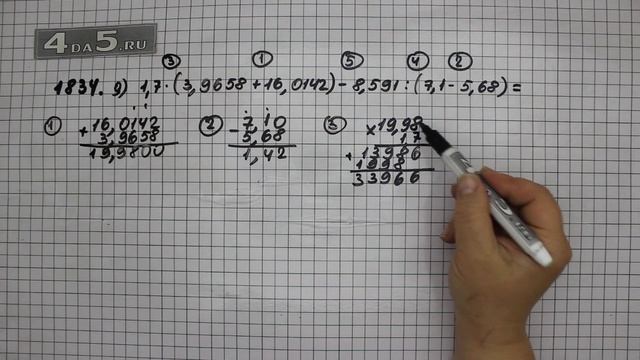 4DA5.RU
③ ① ⑤ ④ ②
1834. д) 1,7·(3,9658+16,0142)-8,591:(7,1-5,68)=
① + 16,0142
3,9658
19,9800
② - 7,10
5,68
1,42
③ × 19,98
1,7
+ 13986
1998
33966